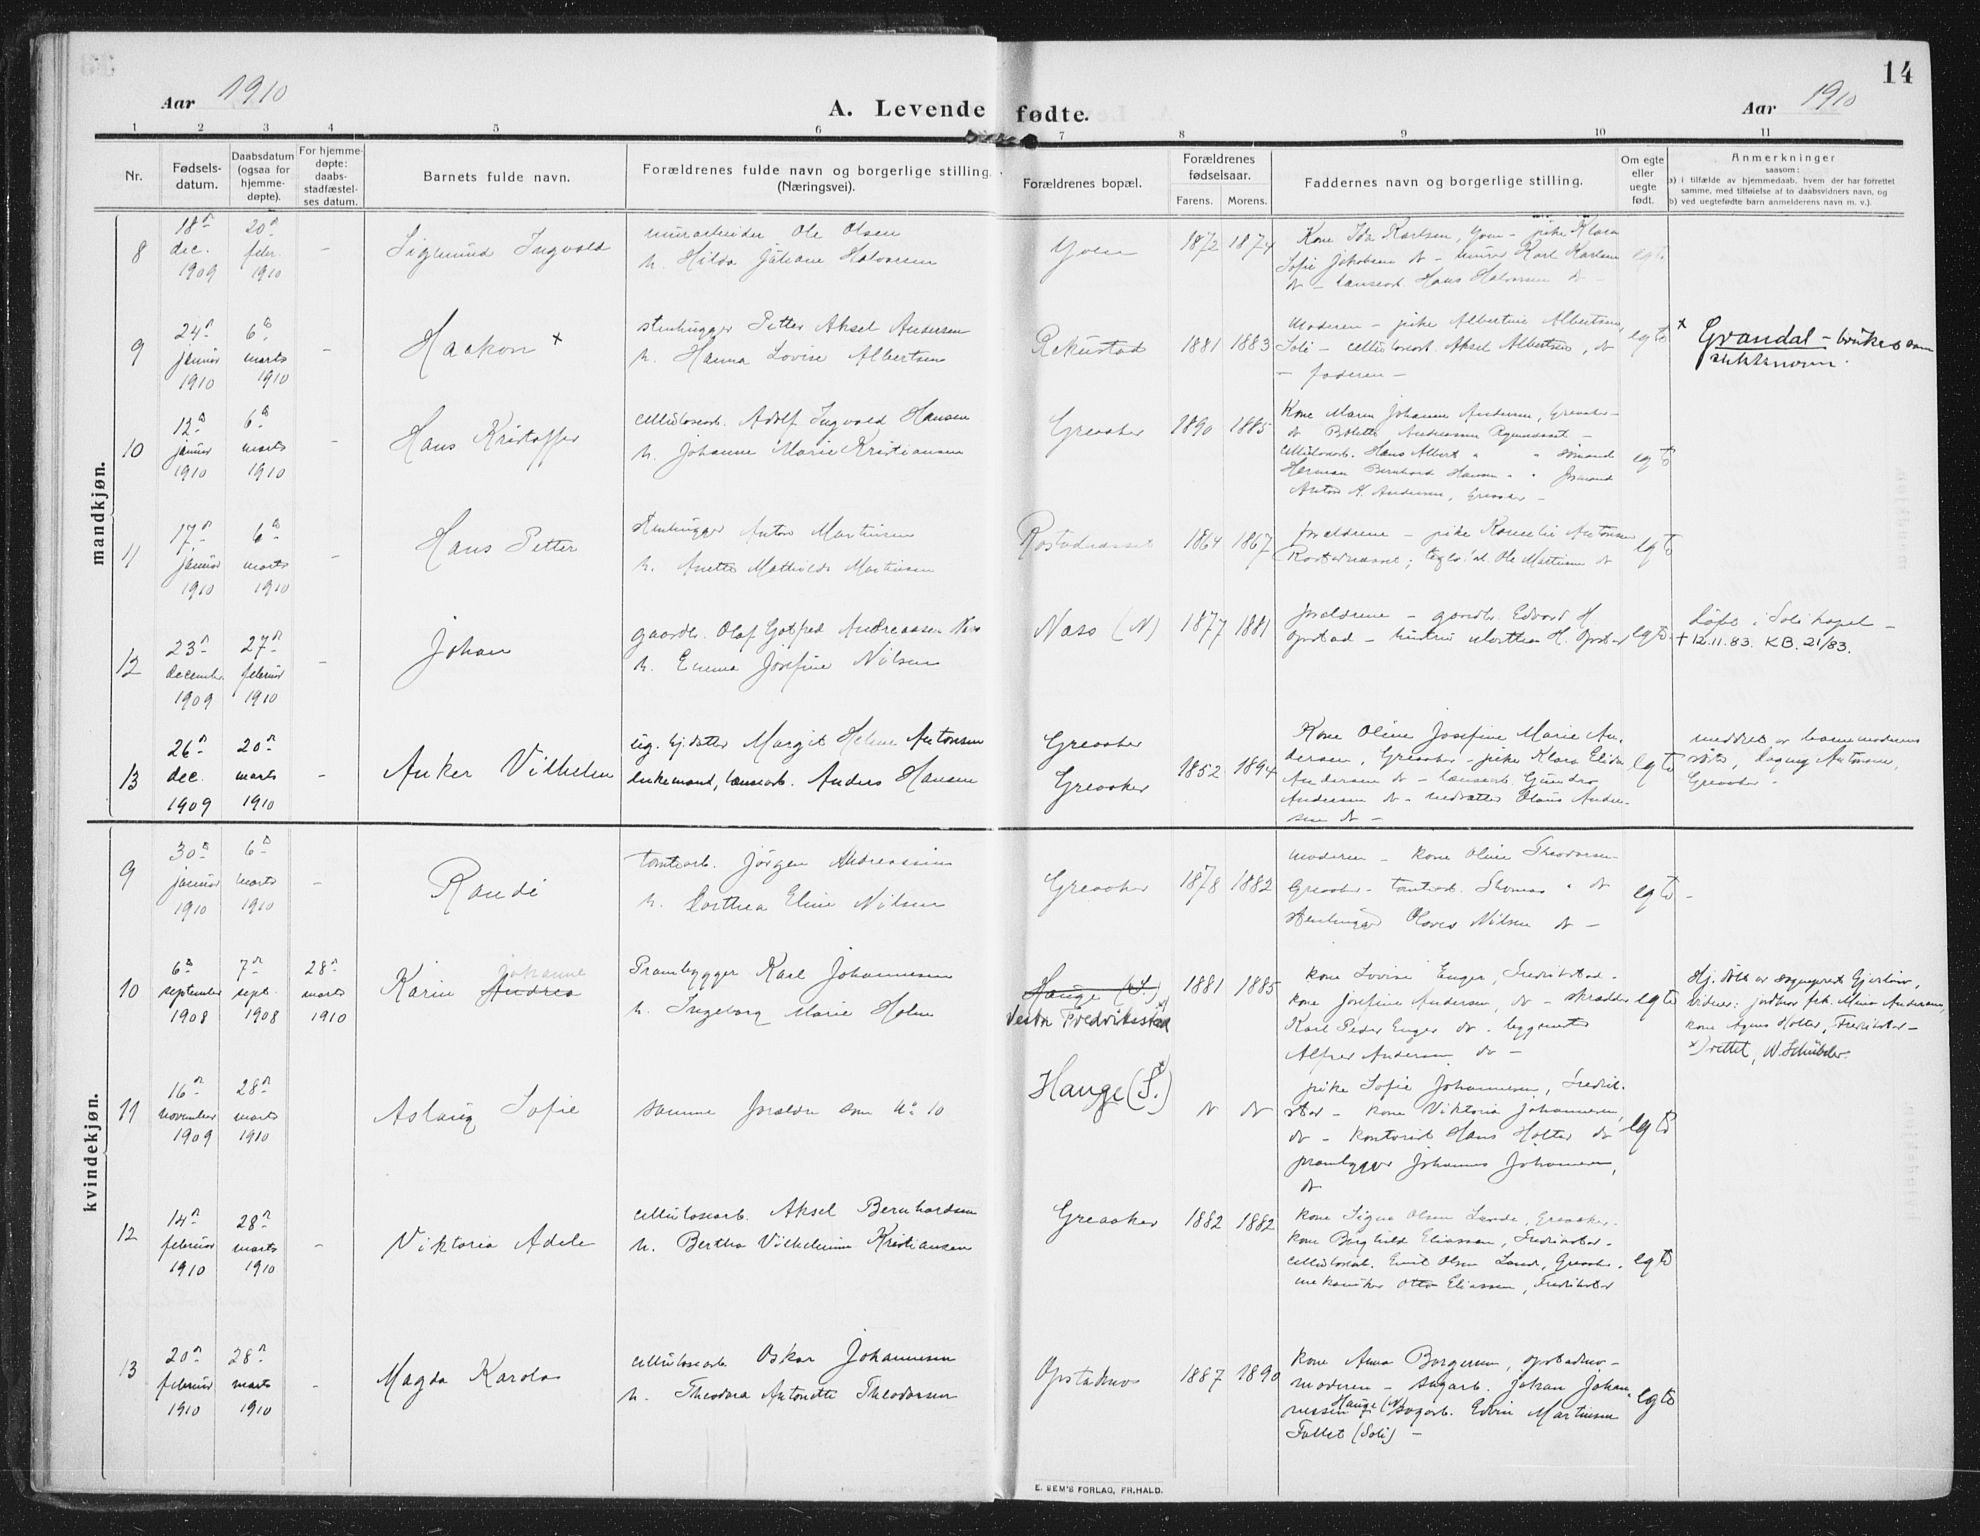 14
Aar 1910
A. Levende fødte.
Aar 1910
1 2 3 4 5 6 7 8 9 10 11
Nr.
Fødsels-
datum.
Daabsdatum
(ogsaa for
hjemme-
døpte).
For hjemme-
døpte:
daabs-
stadfæstel-
ses datum.
Barnets fulde navn.
Forældrenes fulde navn og borgerlige stilling.
(Næringsvei).
Forældrenes bopæl.
Forældrenes
fødselsaar.
Farens. Morens.
Faddernes navn og borgerlige stilling.
Om egte
eller
uegte
født.
Anmerkninger
saasom:
a) i tilfælde av hjemmedaab, hvem der har forrettet
samme, med tilføielse af to daabsvidners navn, og
b) ved uegtefødte barn anmelderens navn m. v.).
mandkjøn.
8
18de
dec.
1909
20de
febr.
1910
-
Sigmund Ingvald
murarbeider Ole Olsen
h. Hilda Juliane Halvorsen
Yven
1872 1874
Kone Ida Karlsen, Yven - pike Klara
Sofie Jakobsen do - murer Karl Karlsen
do - lænsearb. Hans Halvorsen do -
egte
9
24de
januar
1910
6te
marts
1910
-
Haakon x
stenhugger Petter Aksel Andersen
h. Hanna Lovise Albertsen
Rekustad
1881 1883
Moderen - pike Albertine Albertsen,
Soli - cellulosearb. Aksel Albertsen, do
- faderen -
egte
x Grandal - brukes som
slektsnavn.
10
12te
januar
1910
6te
marts
1910
-
Hans Kristoffer
cellulosearb. Adolf Ingvald Hansen
h. Johanne Marie Kristiansen
Greaaker
1890 1885
Kone Maren Johanne Andersen, Greaaker -
do Bolette Andreasen
cellulosearb. Hans Albert " "
Herman Bernhard Hansen " "
Anton K. Andersen, Greaaker -
egte
11
17de
januar
1910
6te
marts
1910
-
Hans Petter
Stenhugger Anton Martinsen
h. Anette Mathilde Martinsen
1864 1867
forældrene - pike Kornelia Antonsen
Ole Martinsen do
egte
12
23de
december
1909
27de
februar
1910
-
Johan
gaardbr. Olaf Gotfred Andreassen Næs
h. Emma Josefine Nilsen
Næss (N)
1877 1881
forældrene - gaardbr. Edvard H.
Opstad - hustru Marthea H. Opstad
egte
Døbt i Soli kapel -
+ 12.11.83. KB. 21/83.
13
26de
dec.
1909
20de
marts
1910
-
Anker Vilhelm
ug. tj.datter Margit Helene Antonsen
enkemand, lænsearb. Anders Hansen
Greaaker
Greaaker
1852 1894
Kone Oline Josefine Marie An-
dersen, Greaaker - pike Klara Elida
Andersen do - lænsearb. Gunder
Andersen do - Olaus Ander-
sen do -
egte
meddelt av barnemoderens
søster, Dagny Antonsen,
Greaaker -
kvindekjøn.
9
30te
januar
1910
6te
marts
1910
-
Randi
tomtearb. Jørgen Andreassen
h. Dorthea Eline Nilsen
Greaaker
1878 1882
moderen - kone Oline Theodorsen
Greaaker - tomtearb. Thomas " do
stenhugger Olaves Nilsen do -
egte -
10
6te
september
1908
7de
sept.
1908
28de
marts
1910
Johanne
Karin Andrea
Prambygger Karl Johannesen
h. Ingeborg Marie Holm
Hauge (S.)
Vestre Fredrikstad x)
1881 1885
kone Lovise Enger, Fredrikstad -
kone Josefine Andersen, do - skrædder
Karl Peder Enger do - byggmester
Alfred Andersen do -
egte
Hj. døbt av sogneprest Gjerløw,
vidner: jordmor frk. Mina Andersen,
kone Agnes Holter, Fredrikstad -
x) rettet, W. Schübeler.
11
16de
november
1909
28de
marts
1910
Aslaug Sofie
samme forældre som no 10
Hauge (S.)
do do
pike Sofie Johannesen, Fredrik-
stad - kone Viktoria Johannesen,
do - kontorist Hans Holter do
prambygger Johannes Johannesen,
do
egte
12
14de
februar
1910
28de
marts
1910
-
Viktoria Adele
cellulosearb. Aksel Bernhardsen
h. Bertha Vilhelmine Kristiansen
Greaaker
1882 1882
kone Signe Olsen Lande, Greaaker -
kone Borghild Eliassen, Fredrikstad -
cellulosearb. Emil Olsen Lande, Greaaker -
mekaniker Otto Eliassen, Fredrikstad
egte
13
20de
februar
1910
28de
marts
1910
-
Magda Karola
cellulosearb. Oskar Johannesen
h. Theodora Antonette Theodorsen
Opstadmos
1887 1890
kone Anna Borgersen, Opstadmo -
moderen - sagarb. Johan Johan-
nessen Hauge (N) sagarb. Edvin Martinsen
Fallet (Soli) -
egte
E. SEM'S FORLAG, FR.HALD.